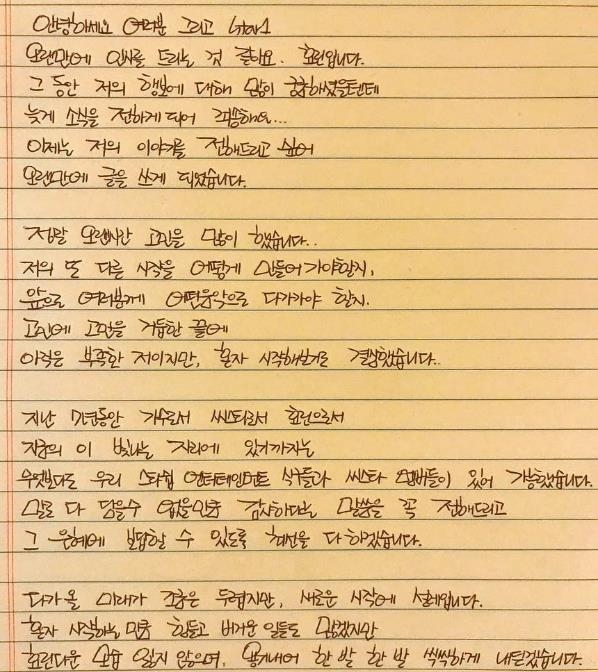 안녕하세요 여러분 그리고 STAR1
오랜만에 인사를 드리는 것 같아요. 효린입니다.
그 동안 저의 행보에 대해 많이 궁금해하셨을텐데
늦게 소식을 전하게 되어 죄송해요...
이제는 저의 이야기를 전해드리고 싶어
오랜만에 글을 쓰게 되었습니다.
정말 오랜시간 고민을 많이 했습니다..
저의 또 다른 시작을 어떻게 만들어 가야할지,
앞으로 여러분께 어떤음악으로 다가가야 할지.
고민에 고민을 거듭한 끝에
아직은 부족한 저이지만, 혼자 시작해보기로 결심했습니다..
지난 7년동안 가수로서 씨스타로서 효린으로서
지금의 이 빛나는 자리에 있기까지는
무엇보다도 우리 스타쉽 엔터테인먼트 식구들과 씨스타 멤버들이 있어 가능했습니다.
말로 다 담을수 없을만큼 감사하다는 말씀을 꼭 전해드리고
그 은혜에 보답할 수 있도록 최선을 다 하겠습니다.
다가올 미래가 조금은 두렵지만, 새로운 시작에 설레입니다.
혼자 시작하는 만큼 힘들고 버거운 일들도 많겠지만
효린다운 모습 잃지 않으며, 용기내어 한 발 한 발 씩씩하게 내딛겠습니다.